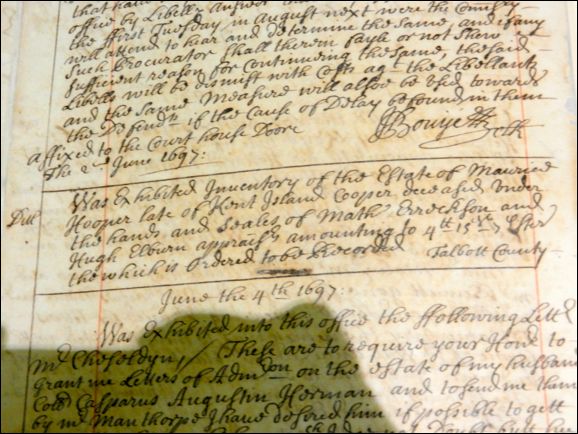 that have
office by Libell Answer
the ffirst Tuesday in August next were the Comissry
will attend to hear and determine the Same, and if any
Such Procurator Shall therein fayle or not Show
Sufficient reason for Continuing the Same, the said
Libells will be dismist with Costs agt the Libellants
and the Same Measure will alsoe be Used towards
the Defendts if the Cause of Delay be found in them
affixed to the Court house Doore
The 2d June 1697: Clk
Was Exhibited Inventory of the Estate of Maurice
Hooper late of Kent Island Cooper deceased Under
the hands and Seales of Math: Erreckson and
Hugh Elburn appraisrs amounting to
the which is Ordered to be Recorded Talbott County
June the 4th 1697:
Was Exhibited into this office the ffollowing Lettr
Mr Cheseldyn, These are to require your Honr to
grant me Letters of Admcon on the estate of my husband
Collo Casparus Augustin Herman and to send me them
by mr Manthorpe I have desired him if possible to gett